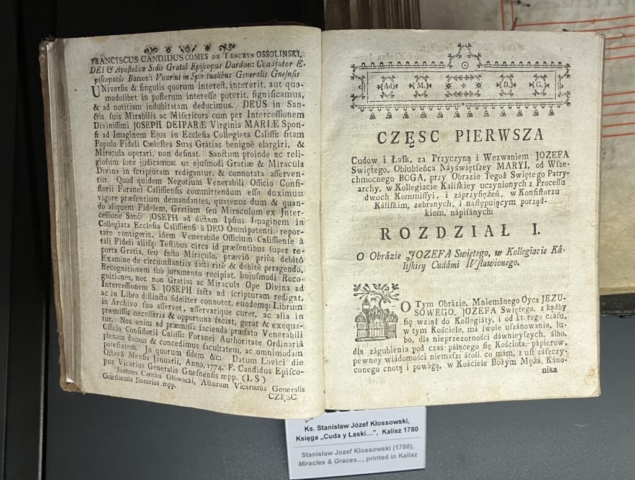 FRANCISCUS CANDIDUS COMES DE TENCZYN OSSOLINSKI,
DEI & Apostolicæ Sedis Gratiâ Episcopus Dardoni Coadjutor E-
piscopatûs Vicarius in Spiritualibus Generalis Gnesnensis
Universis & singulis quorum interest, intererit, aut quo-
modolibet in posterum interesse poterit, significamus,
& ad notitiam indubitatam deducimus. DEUS in San-
ctis suis Mirabilis ac Misericors cum per Intercessionem
Divinissimi JOSEPH DEIPARÆ Virginis MARIÆ Spon-
si ad Imaginem Ejus in Ecclesia Collegiata Calissis sitam
Populo Fideli Cælestes suas Gratias benignè elargiri, &
Miracula operari, non desinat. Sanctum proinde ac reli-
giosum jure judicamus ut ejusmodi Gratiæ & Miracula
Divina in scripturam redigantur, & connotata asserven-
tur. Quod quidem Negotium Venerabili Officio Consi-
storii Foranei Calissiensis committendum esse duximus:
vigore præsentium demandantes, quatenus dum & quan-
do aliquem Fidelem, Gratiam seu Miraculum ex Inter-
cessione Sancti JOSEPH ad dictam Ipsius Imaginem in
Collegiata Ecclesia Calissiensi à DEO Omnipotenti repor-
tare contigerit, idem Venerabile Officium Calissiense à
tali Fideli aliisq; Testibus circa id præsentibus super re-
portata Gratia, seu facto Miraculo, præviò priùs debitò
Examine de circumstantiis facti ritè & debitè peragendo,
Recognitionem sub juramento recipiat, hujusmodi Reco-
gnitiones, nec non Gratias ac Miracula Ope Divina ad
Intercessionem S. JOSEPH facta ad scripturam redigat,
ac in Libro distincto fideliter connotet, eundemq; Librum
in Archivo suo asservet, asservarique curet, ac alia in
præmissis necessaria & opportuna faciat, gerat & exequa-
tur. Nos enim ad præmissa facienda præfato Venerabili
Officio Consistorii Calissiensis Foranei Authoritate Ordinariâ
plenam damus & concedimus facultatem, ac omnimodam
potestatem. In quorum fidem &c: Datum Lovici die
Octava Mensis Januarii, Anno, 1774. F. Candidus Episco-
pus Vicarius Generalis Gnesnensis mpp. (LS)
Joannes Cantius Głowacki, Actorum Vicariatûs Generalis
Gnesnensis Notarius mpp.
CZĘSC
Ad. M. D. G.
CZĘSC PIERWSZA
Cudow i Łask, za Przyczyną i Wezwaniem JOZEFA
Swiętego, Oblubieńca Nayświętszey MARYI, od Wsze-
chmocnego BOGA, przy Obrazie Tegoż Swiętego Patry-
archy, w Kollegiacie Kaliskiey uczynionych z Processu
dwoch Kommissyi, i záprzysiężeń, w Konsystorzu
Kaliskim, zebranych, i następuiącym porząd-
kiem, napisanych:
ROZDZIAŁ I.
O Obrázie JOZEFA Swiętego, w Kollegiacie Ká-
liskiey Cudámi Wsławionego.
O Tym Obrázie, Mniemánego Oyca JEZU-
SOWEGO, JOZEFA Swiętego, z kądby
się wziął do Kollegiáty, i od kt rego czásu,
w tym Kościele, ma swoie uszánowánie, lu-
bo, dla nieprzezorności dáwnieyszych, álbo,
dla zágubienia pod czas pálnego się Kościołá, pápierow,
pewney wiádomości niemász ątoli, co mam, z ust zászczy-
conego cnotą i powágą, w Kościele Bożym Mężá, Káno-
nika
Ks. Stanisław Józef Kłossowski,
Księga „Cuda y Łaski...”, Kalisz 1780
Stanisław Józef Kłossowski (1780),
Miracles & Graces..., printed in Kalisz